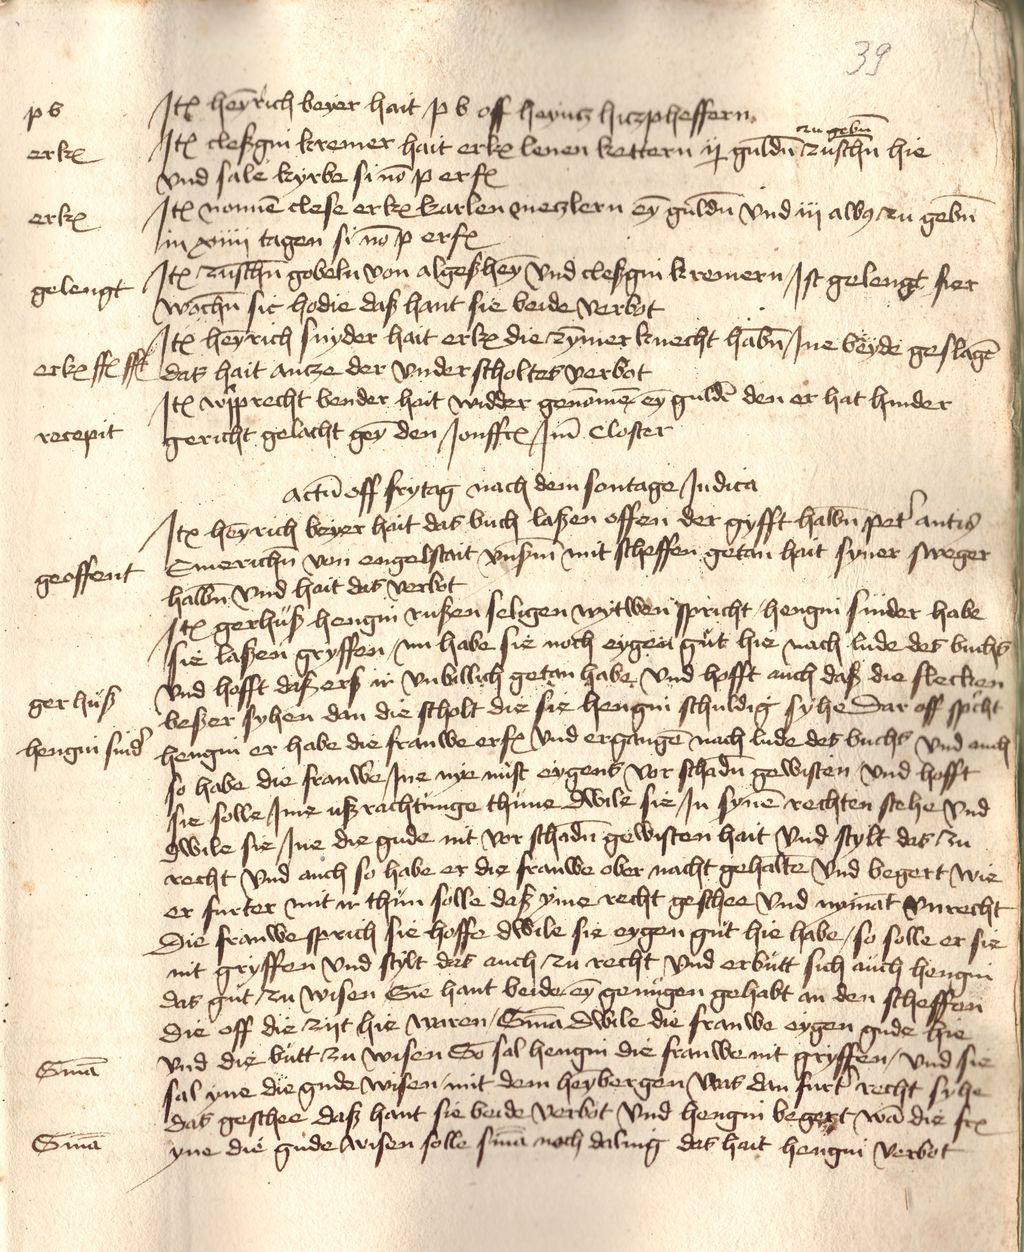 39
p b Itx henrich beyer hait p b off heyntz hiczpheffern
erkx Itx cleßgin kremer hait erkx lenen kettern ij guldũ zusch̃n hie
zu gebũ
vnd sale kyrbe si nõ p erfx
erkx Itx clese erkx karlen meczlern eỹ guldũ vnd iij alb9 zu gebñ
in xiiij tagen si nõ p erfx
gelengt Itx zusch̃n gobeln von algeßheỹ vnd cleßgin kremern / Ist gelengt fier
woch̃n sic hodie daß hant sie beide verbot
erkx ffx Itx henrich snyder hait erkx die zymer knecht habñ Ine beyde geslagẽ
das hait ancze der vnderscholtes verbot
recepit Itx wiprecht bender hait widder genõmẽ eỹ guldẽ den er hat hinder
gericht gelacht geỹ den Jonffrx Im̃ Closter
actũ off frytag nach dem sontage Judica
Itx henrich beyer hait das buch laßen offen der gyfft halbñ
geoffent Emerich̃n von engelstait mit scheffen getan hait syner sweger
halbñ vnd hait das verbot
Itx gerhuß hengin rußen seligen wytwen spricht / hengin sinder habe
sie laßen gryffen / nu habe sie noch eygen gut hie nach lude des buchs
gerhuß vnd hofft daß erß ir vnbillich getan habe vnd hofft auch daß die flecken
beßer syhen dan die scholt die sie hengin schuldig syhe Dar off spricht
hengin sind' hengin er habe die frauwe erfx vnd ergangẽ nach lude des buchs vnd auch
so habe die frauwe Ine nye nust eygens vor schadũ gewisten / vnd hofft
sie solle Ine ußrachtunge thune dwile sie In synẽ rechten stehe vnd
dwile sie Ine die gude nit vor schadũ gewisten hait vnd stylt das zu
recht vnd auch so habe er die frauwe ober nacht gehaltẽ vnd begert wie
er furter mit ir thun solle daß yme recht geschee vnd nyman̄t vnrecht
Die frauwe sprich sie hoffe dwile sie eygen gut hie habe / so solle er sie
nit gryffen vnd stylt das auch zu recht vnd erbutt sich auch hengin
das gut zu wisen Sie hant beide eỹ genugen gehabt an den scheffen
die off die zijt hie waren / Sniã dwile die frauwe eygen gude hie
Sniã vnd die butt zu wisen So sal hengin die frauwe nit gryffen / vnd sie
sal yne die gude wisen / mit dem heỹbergen was dan furt' recht syhe
das geschee daß hant sie beide verbot vnd hengin begert wã die frx
Sniã yne die gude wisen solle sniã noch daling das hait hengin verbot